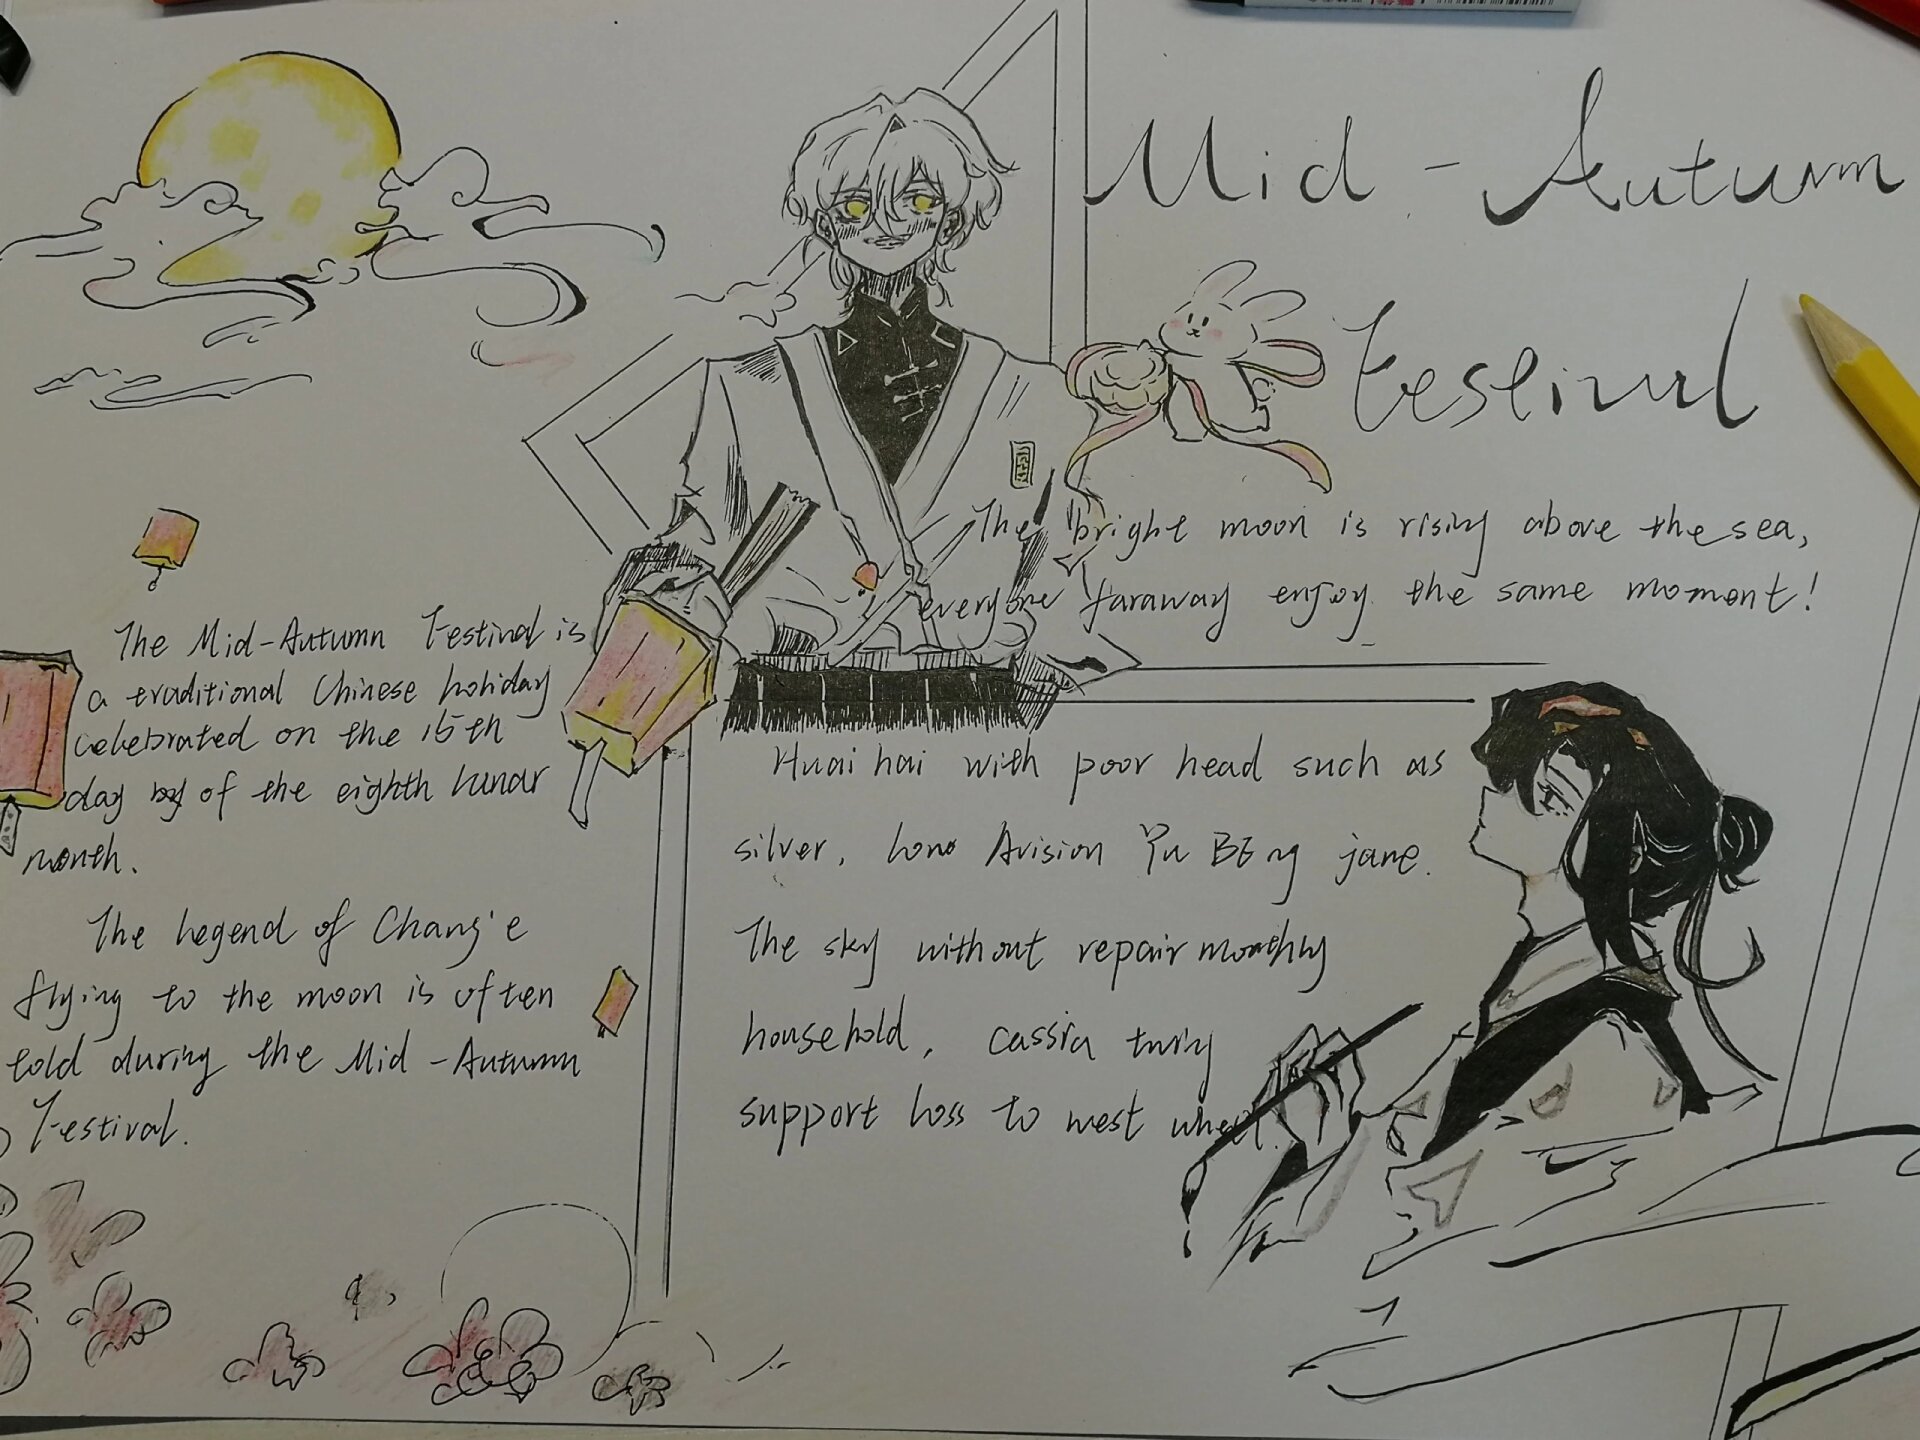 Mid-Autumn
Festival
The bright moon is rising above the sea,
everyone faraway enjoy the same moment!
The Mid-Autumn Festival is
a traditional Chinese holiday
celebrated on the 15th
day of the eighth lunar
month.
The legend of Chang'e
flying to the moon is often
told during the Mid-Autumn
Festival.
Huai hai with poor head such as
silver, Avision Yu BEng jane.
The sky without repair monthly
household, cassia twig
support loss to west wheel.